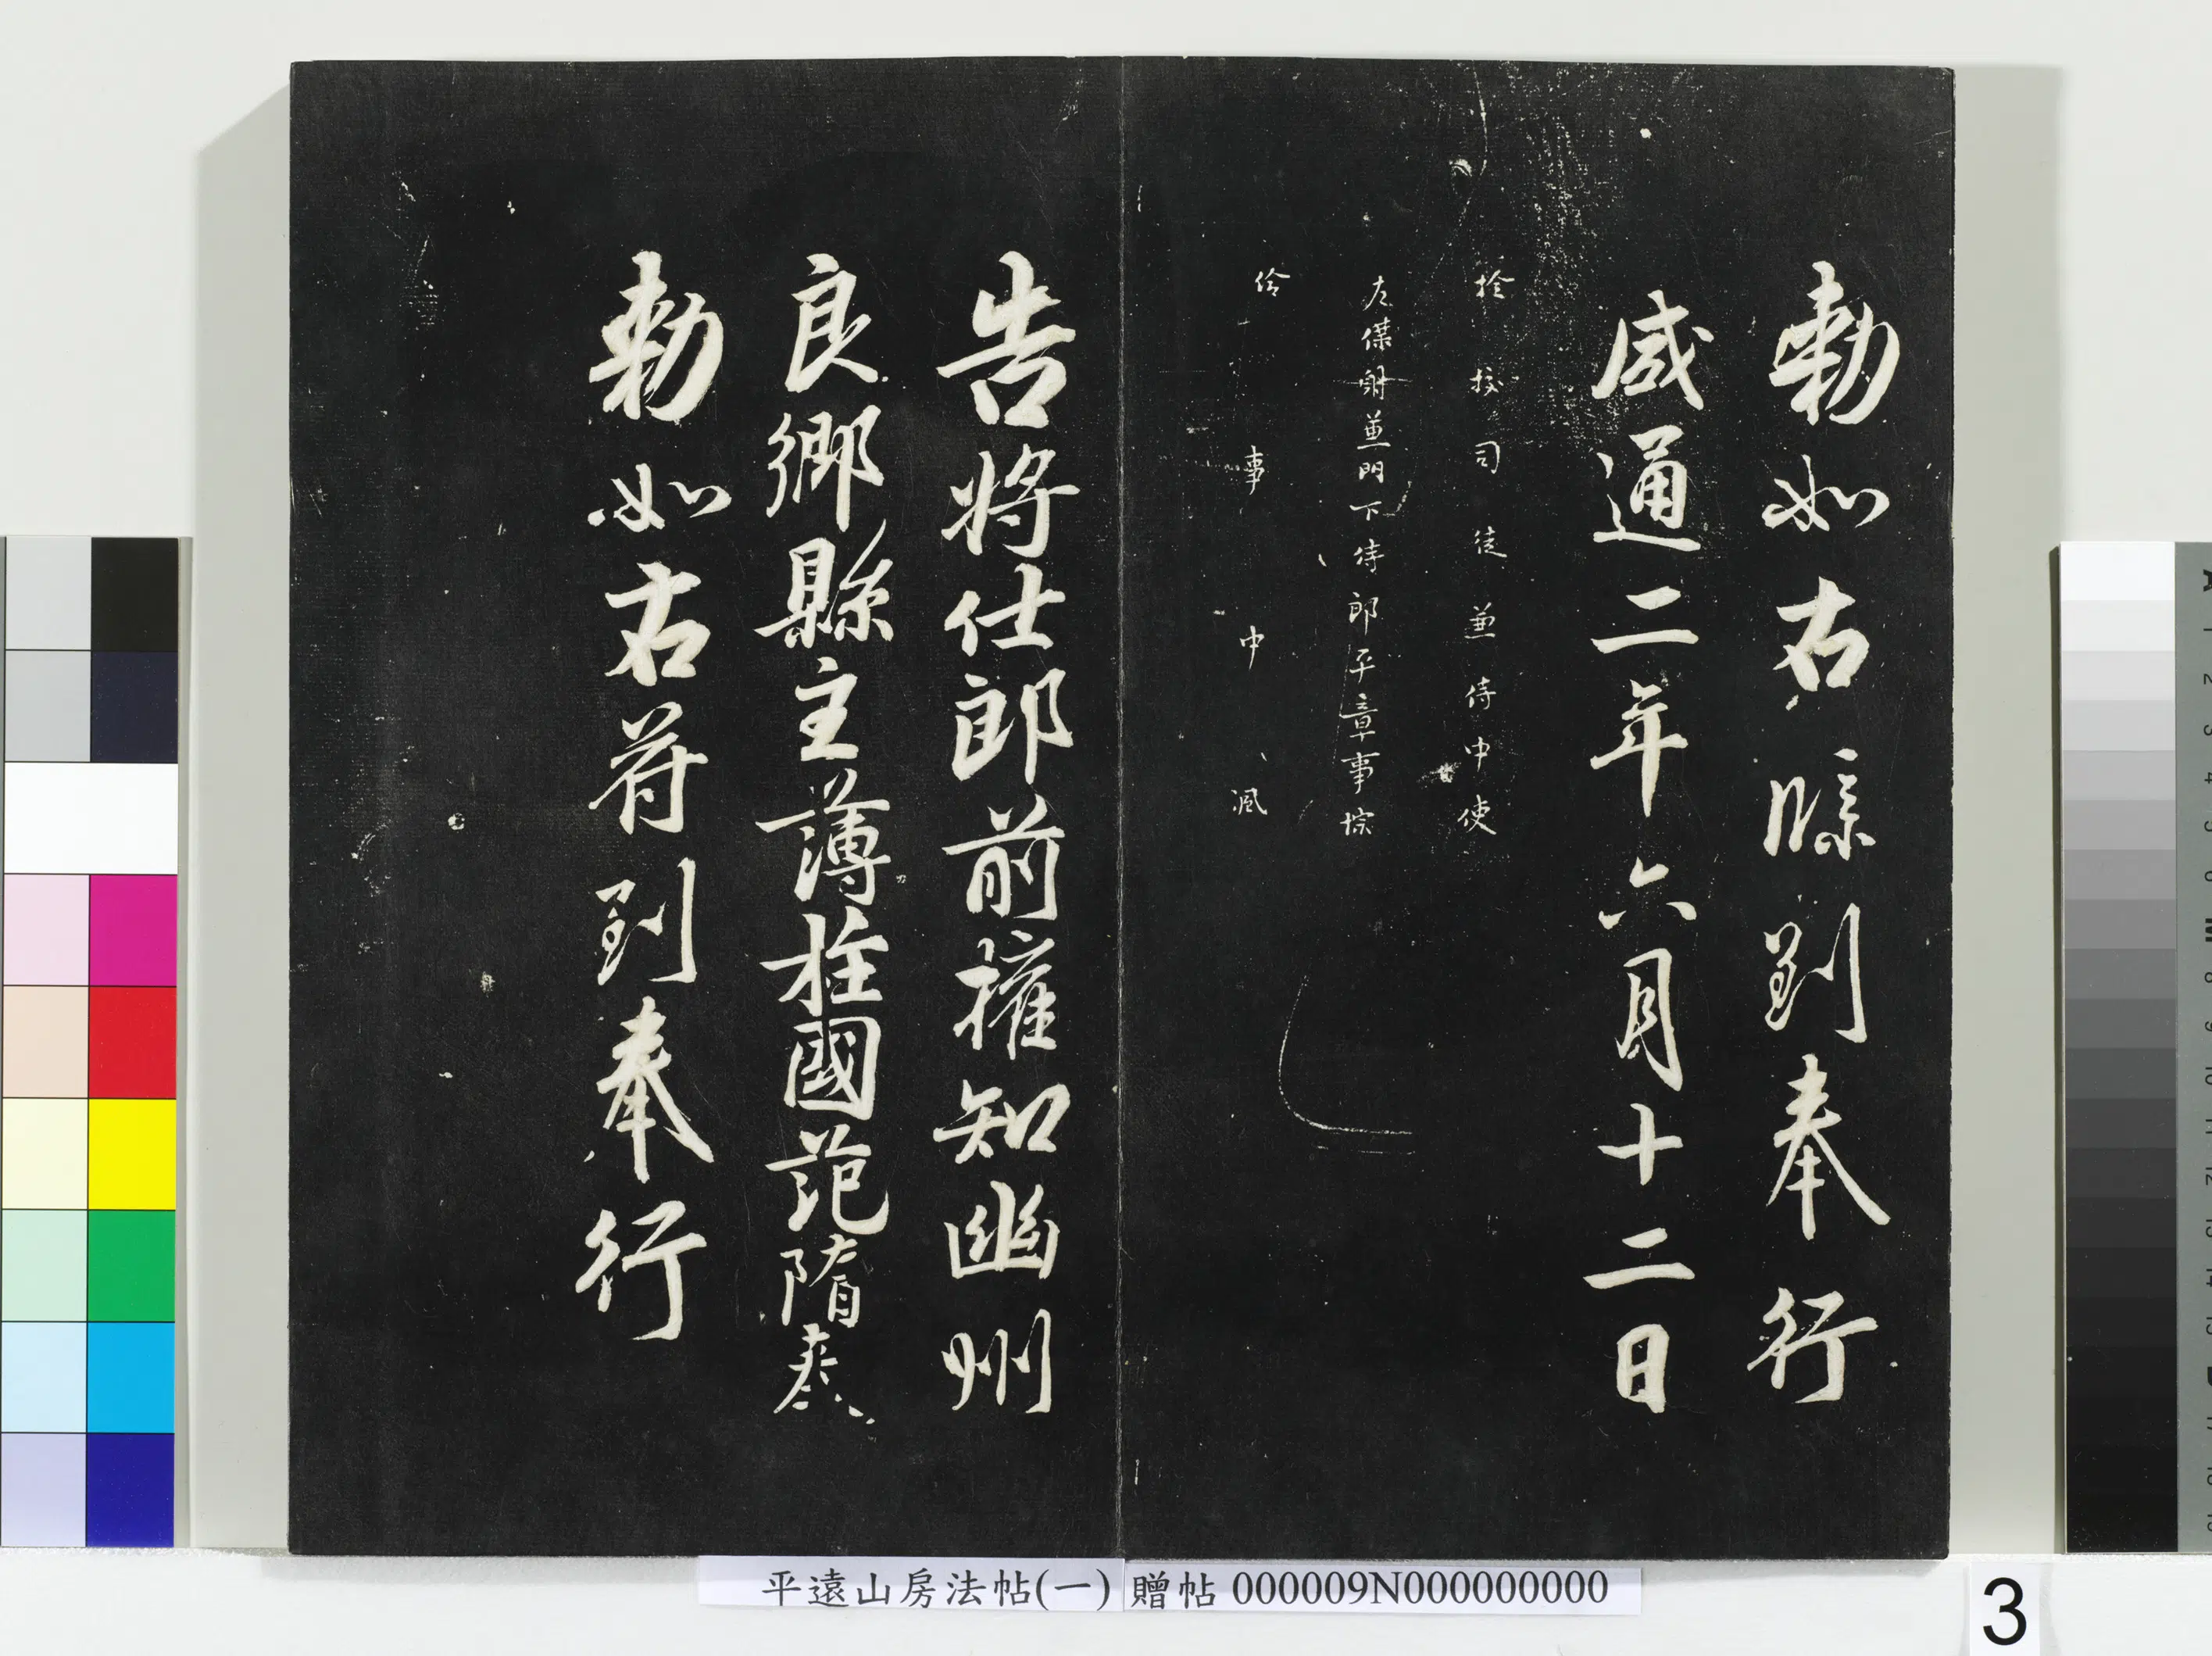 勅如右牒到奉行
咸通二年六月十二日
檢校司徒兼侍中使
左僕射兼門下侍郎平章事悰
給事中渢
告將仕郎前權知幽州
良鄉縣主薄柱國范隋奉
勅如右符到奉行
平遠山房法帖(一) 贈帖 000009N000000000
3